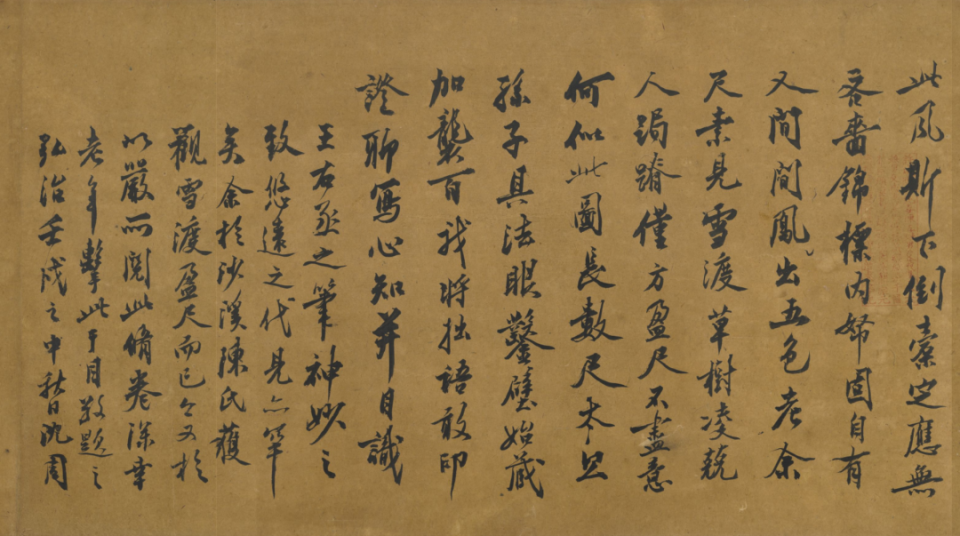 此風斯下倒橐定應無
吝嗇錦標內帑固自有
又間間鳳出五色老余
尺素見雪渡草樹凌兢
人跼蹐僅方盈尺不盡意
何似此圖長數尺本望
孫子具法眼鑿壁始藏
加襲百我將拙語敢印
證聊寫心知并目識
王右丞之筆神妙之
致悠遠之代見亦罕
矣余於沙溪陳氏獲
觀雪渡盈尺而已今又於
以嚴而閱此脩卷深幸
老年擊此于目敬題之
弘治壬戌之中秋日沈周